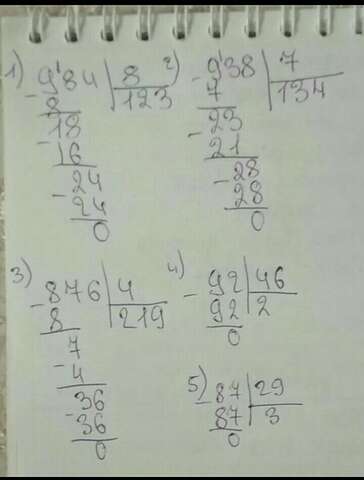 1) 9'84 | 8
- 8 | 123
18
- 16
24
- 24
0
2) 9'38 | 7
- 7 | 134
23
- 21
28
- 28
0
3) 876 | 4
- 8 | 219
7
- 4
36
- 36
0
4) 92 | 46
- 92 | 2
0
5) 87 | 29
- 87 | 3
0